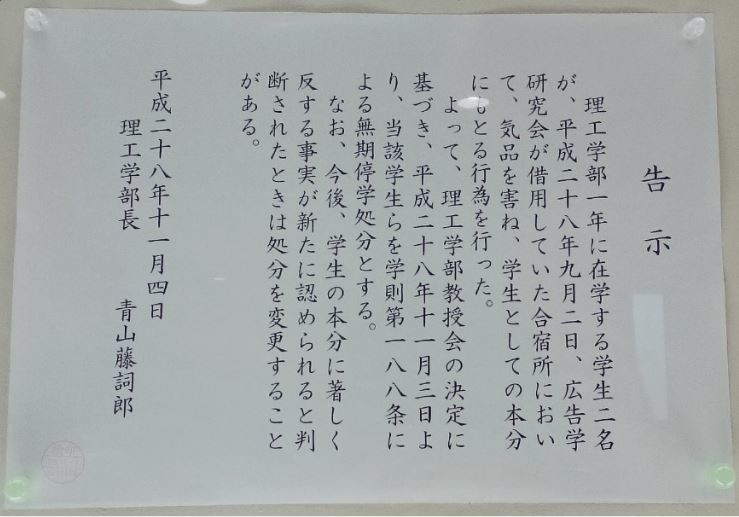 告示
理工学部一年に在学する学生二名
が、平成二十八年九月二日、広告学
研究会が借用していた合宿所におい
て、気品を害ね、学生としての本分
にもとる行為を行った。
よって、理工学部教授会の決定に
基づき、平成二十八年十一月三日よ
り、当該学生らを学則第一八八条に
よる無期停学処分とする。
なお、今後、学生の本分に著しく
反する事実が新たに認められると判
断されたときは処分を変更すること
がある。
平成二十八年十一月四日
理工学部長 青山藤詞郎